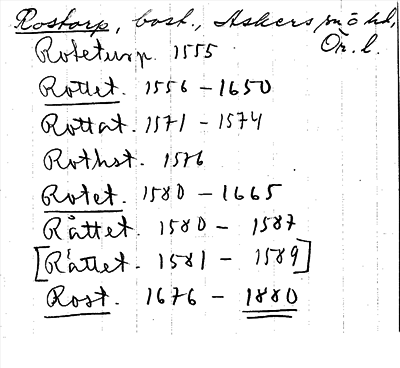 Rostorp, bost., Askers sn ö hd,
Ör. l.
Roteturp. 1555
Rottet. 1556 – 1650
Rottat. 1571 – 1574
Rothst. 1576
Rotet. 1580 – 1665
Råttet. 1580 – 1587
[Råttet. 1581 – 1589]
Rost. 1676 – 1880